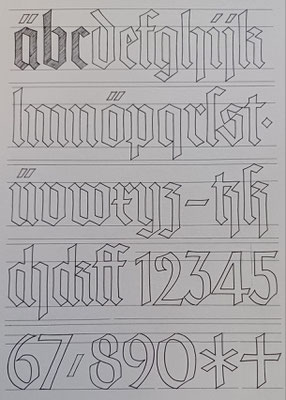 äbcdefghijk
lmnöpqrſst.
üvwxyz – tz ß
chckff 12345
67/890*+